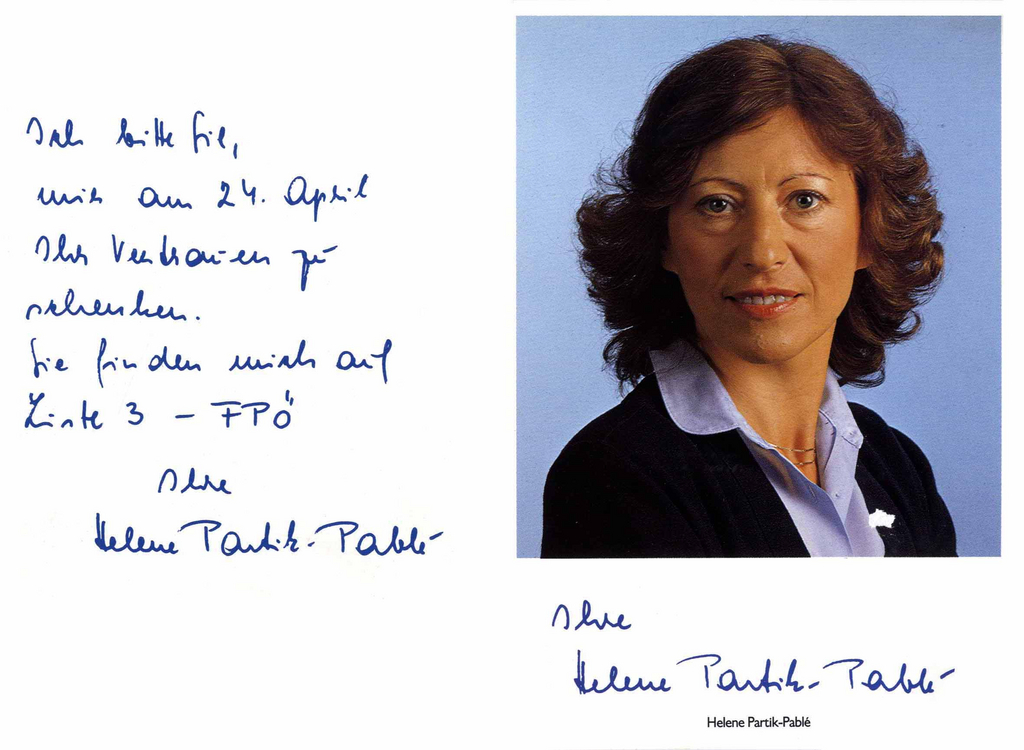 Ich bitte Sie,
mich am 24. April
Ihr Vertrauen zu
schenken.
Sie finden mich auf
Liste 3 – FPÖ
Ihre
Helene Partik-Pablé
Ihre
Helene Partik-Pablé
Helene Partik-Pablé